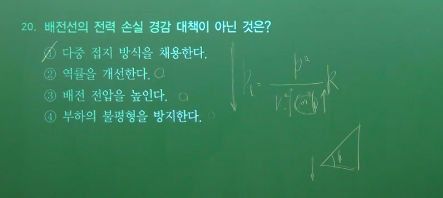 20. 배전선의 전력 손실 경감 대책이 아닌 것은?
① 다중 접지 방식을 채용한다.
② 역률을 개선한다.
③ 배전 전압을 높인다.
④ 부하의 불평형을 방지한다.